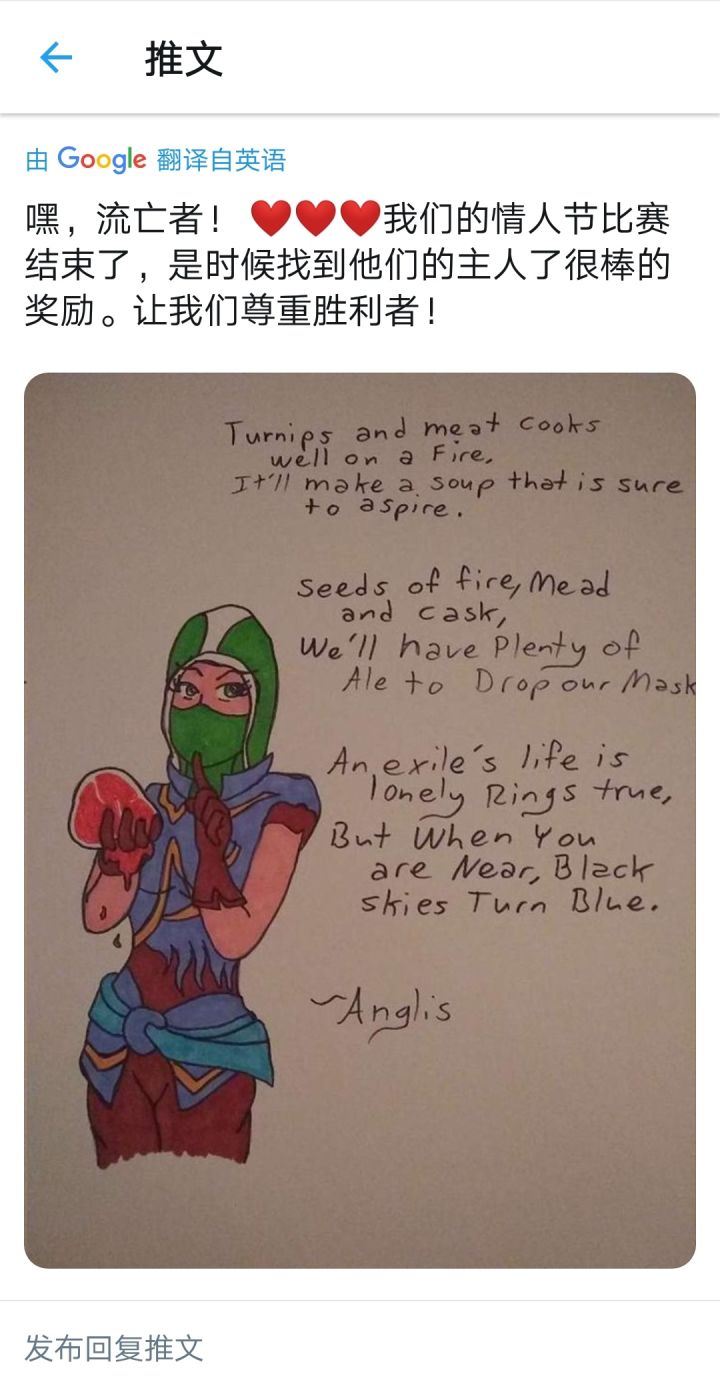 推文
由 Google 翻译自英语
嘿，流亡者！ ❤️❤️❤️我们的情人节比赛
结束了，是时候找到他们的主人了很棒的
奖励。让我们尊重胜利者！
Turnips and meat cooks
well on a Fire,
It'll make a soup that is sure
to aspire.
Seeds of fire, Mead
and cask,
We'll have Plenty of
Ale to Drop our Mask
An exile's life is
lonely Rings true,
But When You
are Near, Black
skies Turn Blue.
~Anglis
发布回复推文